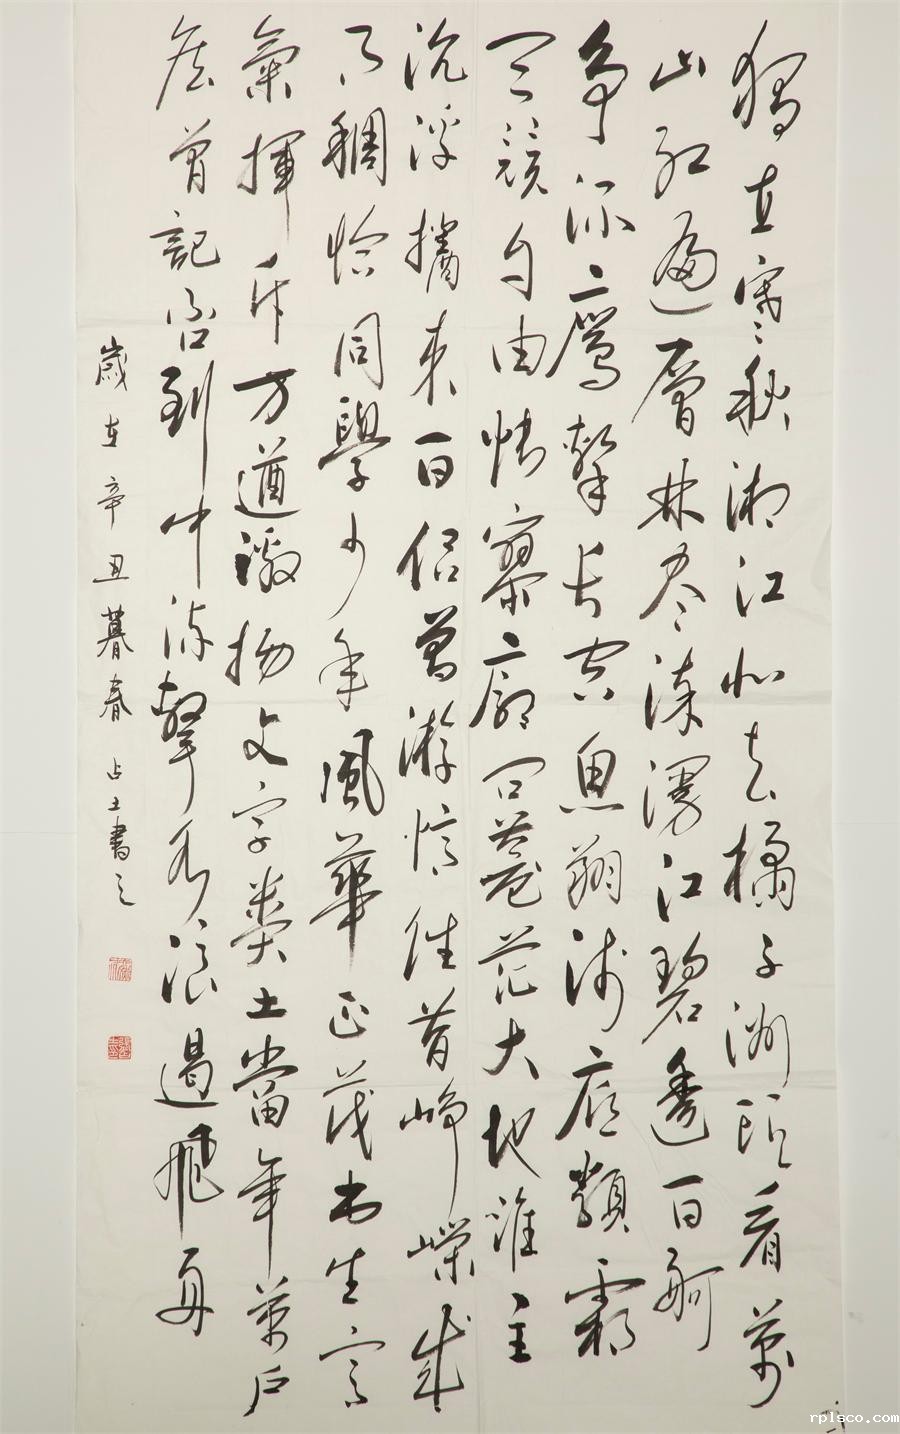 獨立寒秋湘江北去橘子洲頭看萬
山紅遍層林盡染漫江碧透百舸
爭流鷹擊長空魚翔淺底類霜
天競自由悵寥廓問蒼茫大地誰主
沉浮攜來百侶曾游憶往昔崢嶸歲
月稠恰同學少年風華正茂書生意
氣揮斥方遒激揚文字糞土當年萬戶
侯曾記否到中流擊水浪遏飛舟
歲在辛丑暮春占士書之
rplsco.com